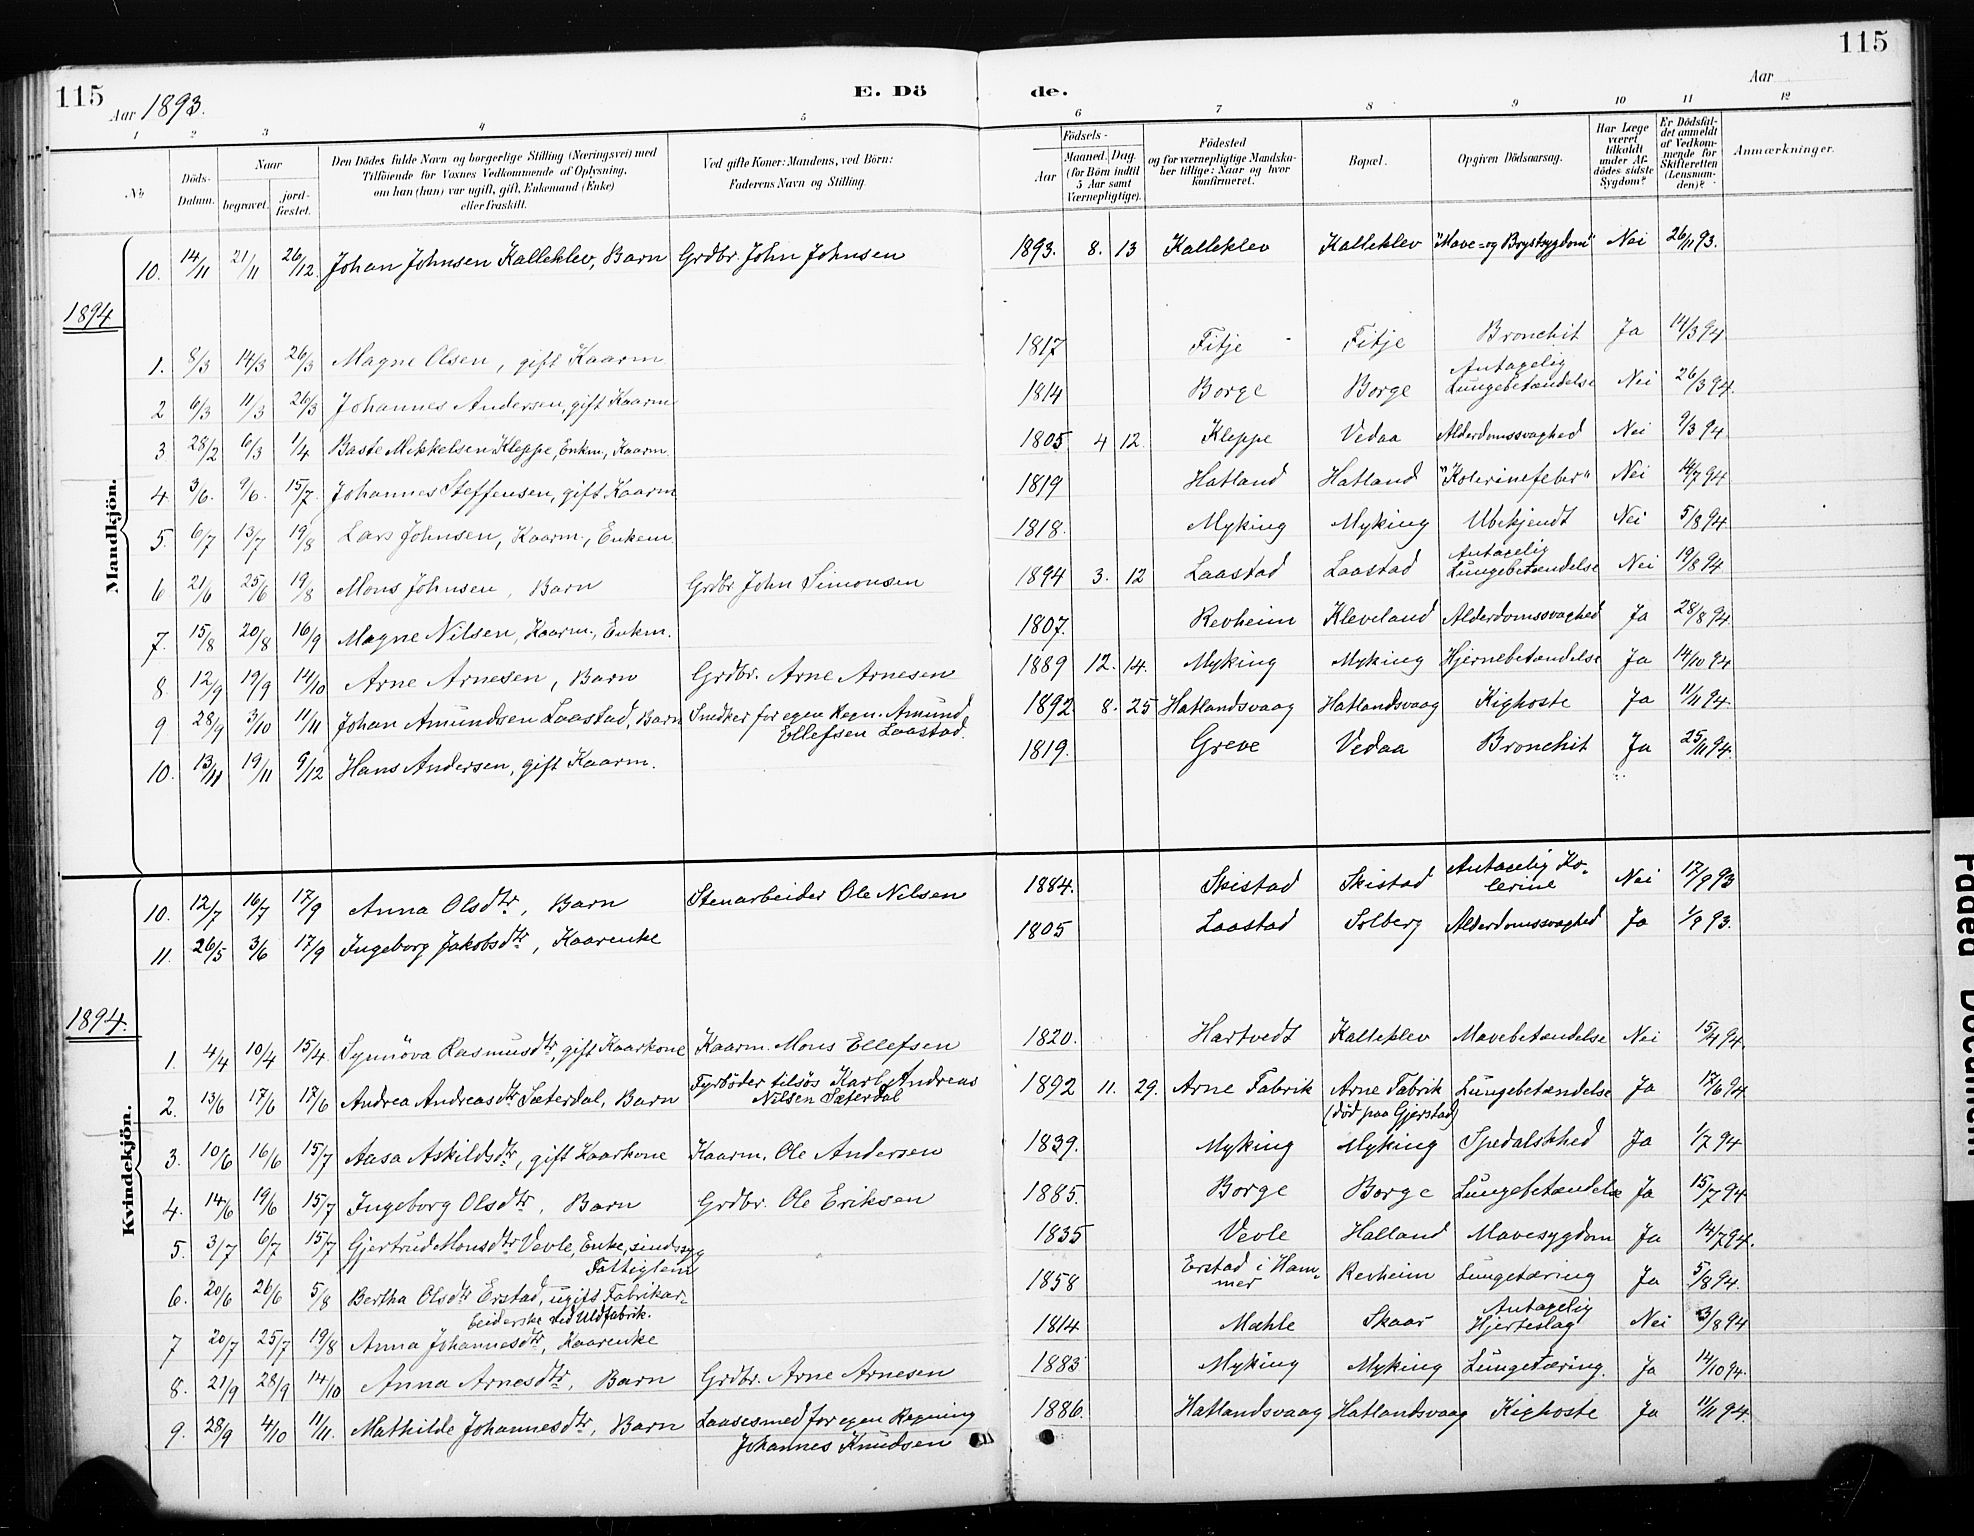 115
115
Aar 1893.
E. Dö de.
Aar
1 2 3 4 5 6 7 8 9 10 11 12
No
Döds-Datum.
Naar
begravet.
jord-fæstet.
Den Dödes fulde Navn og borgerlige Stilling (Næringsvei) med
Tilföiende for Voxnes Vedkommende af Oplysning,
om han (hun) var ugift, gift, Enkemand (Enke)
eller fraskilt.
Ved gifte Koner: Mandens, ved Börn:
Faderens Navn og Stilling.
Födsels-
Aar
Maaned. Dag.
(for Börn indtil
5 Aar samt
Værnepligtige).
Födested
og for værnepligtige Mandska-
ber tillige: Naar og hvor
konfirmeret.
Bopæl.
Opgiven Dödsaarsag.
Har Læge
været
tilkaldt
under Af-
dödes sidste
Sygdom?
Er Dödsfal-
det anmeldt
af Vedkom-
mende for
Skifteretten
(Lensman-
den)?
Anmærkninger.
Mandkjön.
10. 14/11 21/11 26/12. Johan Johnsen Kalleklev, Barn Grdbr. John Johnsen 1893. 8. 13 Kalleklev Kalleklev "Mave- og Brystsygdom" Nei 26/11 93.
1894
1. 8/3 14/3 26/3 Magne Olsen, gift Kaarm. 1817 Fitje Fitje Bronchit Ja 14/3 94.
2 6/3 11/3 26/3 Johannes Andersen, gift Kaarm 1814 Borge Borge Antagelig Lungebetændelse Nei 26/3 94.
3 28/2 6/3 1/4 Baste Mikkelsen Kleppe, Enkm., Kaarm. 1805 4 12. Kleppe Vedaa Alderdomssvaghed Nei 9/3 94.
4. 3/6. 9/6. 15/7. Johannes Steffensen, gift Kaarm 1819 Hatland Hatland "Kolerinefeber" Nei 14/7 94
5. 6/7 13/7 19/8 Lars Johnsen, Kaarm., Enkem. 1818. Myking Myking Ubekjendt Nei 5/8 94
6 21/6 25/6 19/8 Mons Johnsen, Barn Grdbr. John Simonsen 1894 3. 12 Laastad Laastad Antagelig Lungebetændelse Nei 19/8 94
7. 15/8 20/8 16/9 Magne Nilsen, Kaarm., Enkm. 1807. Revheim Kleveland Alderdomssvaghed Ja 28/8 94.
8 12/9 19/9 14/10 Arne Arnesen, Barn Grdbr. Arne Arnesen 1889 12. 14. Myking Myking Hjernebetændelse Ja 14/10 94
9 28/9 3/10 11/11 Johan Amundsen Laastad, Barn Snedker for egen Regn. Amund
Ellefsen Laastad. 1892 8. 25 Hatlandsvaag Hatlandsvaag Kighoste Ja 11/11 94.
10. 13/11 19/11 9/12 Hans Andersen, gift Kaarm. 1819. Greve Vedaa Bronchit Ja 25/11 94.
Kvindekjön.
10. 12/7 16/7 17/9 Anna Olsdtr, Barn Stenarbeider Ole Nilsen 1884. Skistad Skistad Antagelig Ko-
lerine Nei 17/9 93
11. 26/5 3/6 17/9 Ingeborg Jakobsdtr, Kaarenke 1805 Laastad Solberg Alderdomssvaghed Ja 1/9 93.
1894.
1. 4/4 10/4 15/4. Synnöva Rasmusdtr, gift Kaarkone Kaarm. Mons Ellefsen 1820. Hartvedt Kalleklev Mavebetændelse Nei 15/4 94.
2. 13/6 17/6 17/6 Andrea Andreasdtr Sæterdal, Barn Fyrböder tilsös Karl Andreas
Nilsen Sæterdal 1892 11. 29. Arne Fabrik Arne Fabrik
(död paa Gjerstad) Lungebetændelse Ja 17/6 94
3. 10/6 16/6 15/7 Aasa Askildsdtr, gift Kaarkone Kaarm. Ole Andersen 1839. Myking Myking Spedalskhed Ja 1/7 94
4. 14/6 19/6 15/7 Ingeborg Olsdtr, Barn Grdbr. Ole Eriksen 1885. Borge Borge Lungebetændelse Ja 15/7 94
5. 3/7 6/7 15/7 Gjertrud Monsdtr Vevle, Enke, sindssyg
Fattiglem 1835 Vevle Halland Mavesygdom Ja 14/7 94.
6. 20/6 26/6 5/8 Bertha Olsdtr Erstad, ugift Fabrikar-
beiderske ved Uldfabrik. 1858 Erstad i Ham-
mer Revheim Lungetæring Ja 5/8 94.
7 20/7 25/7 19/8 Anna Johannesdtr, Kaarenke 1814 Mæhle Skaar Antagelig
Hjerteslag Nei 3/8 94
8. 21/9 28/9 14/10 Anna Arnesdtr, Barn Grdbr. Arne Arnesen 1883 Myking Myking Lungetæring. Ja 14/10 94.
9. 28/9 4/10 11/11. Mathilde Johannesdtr, Barn Laasesmed for egen Regning
Johannes Knudsen 1886. Hatlandsvaag Hatlandsvaag Kighoste Ja 11/11 94.
Faded Document